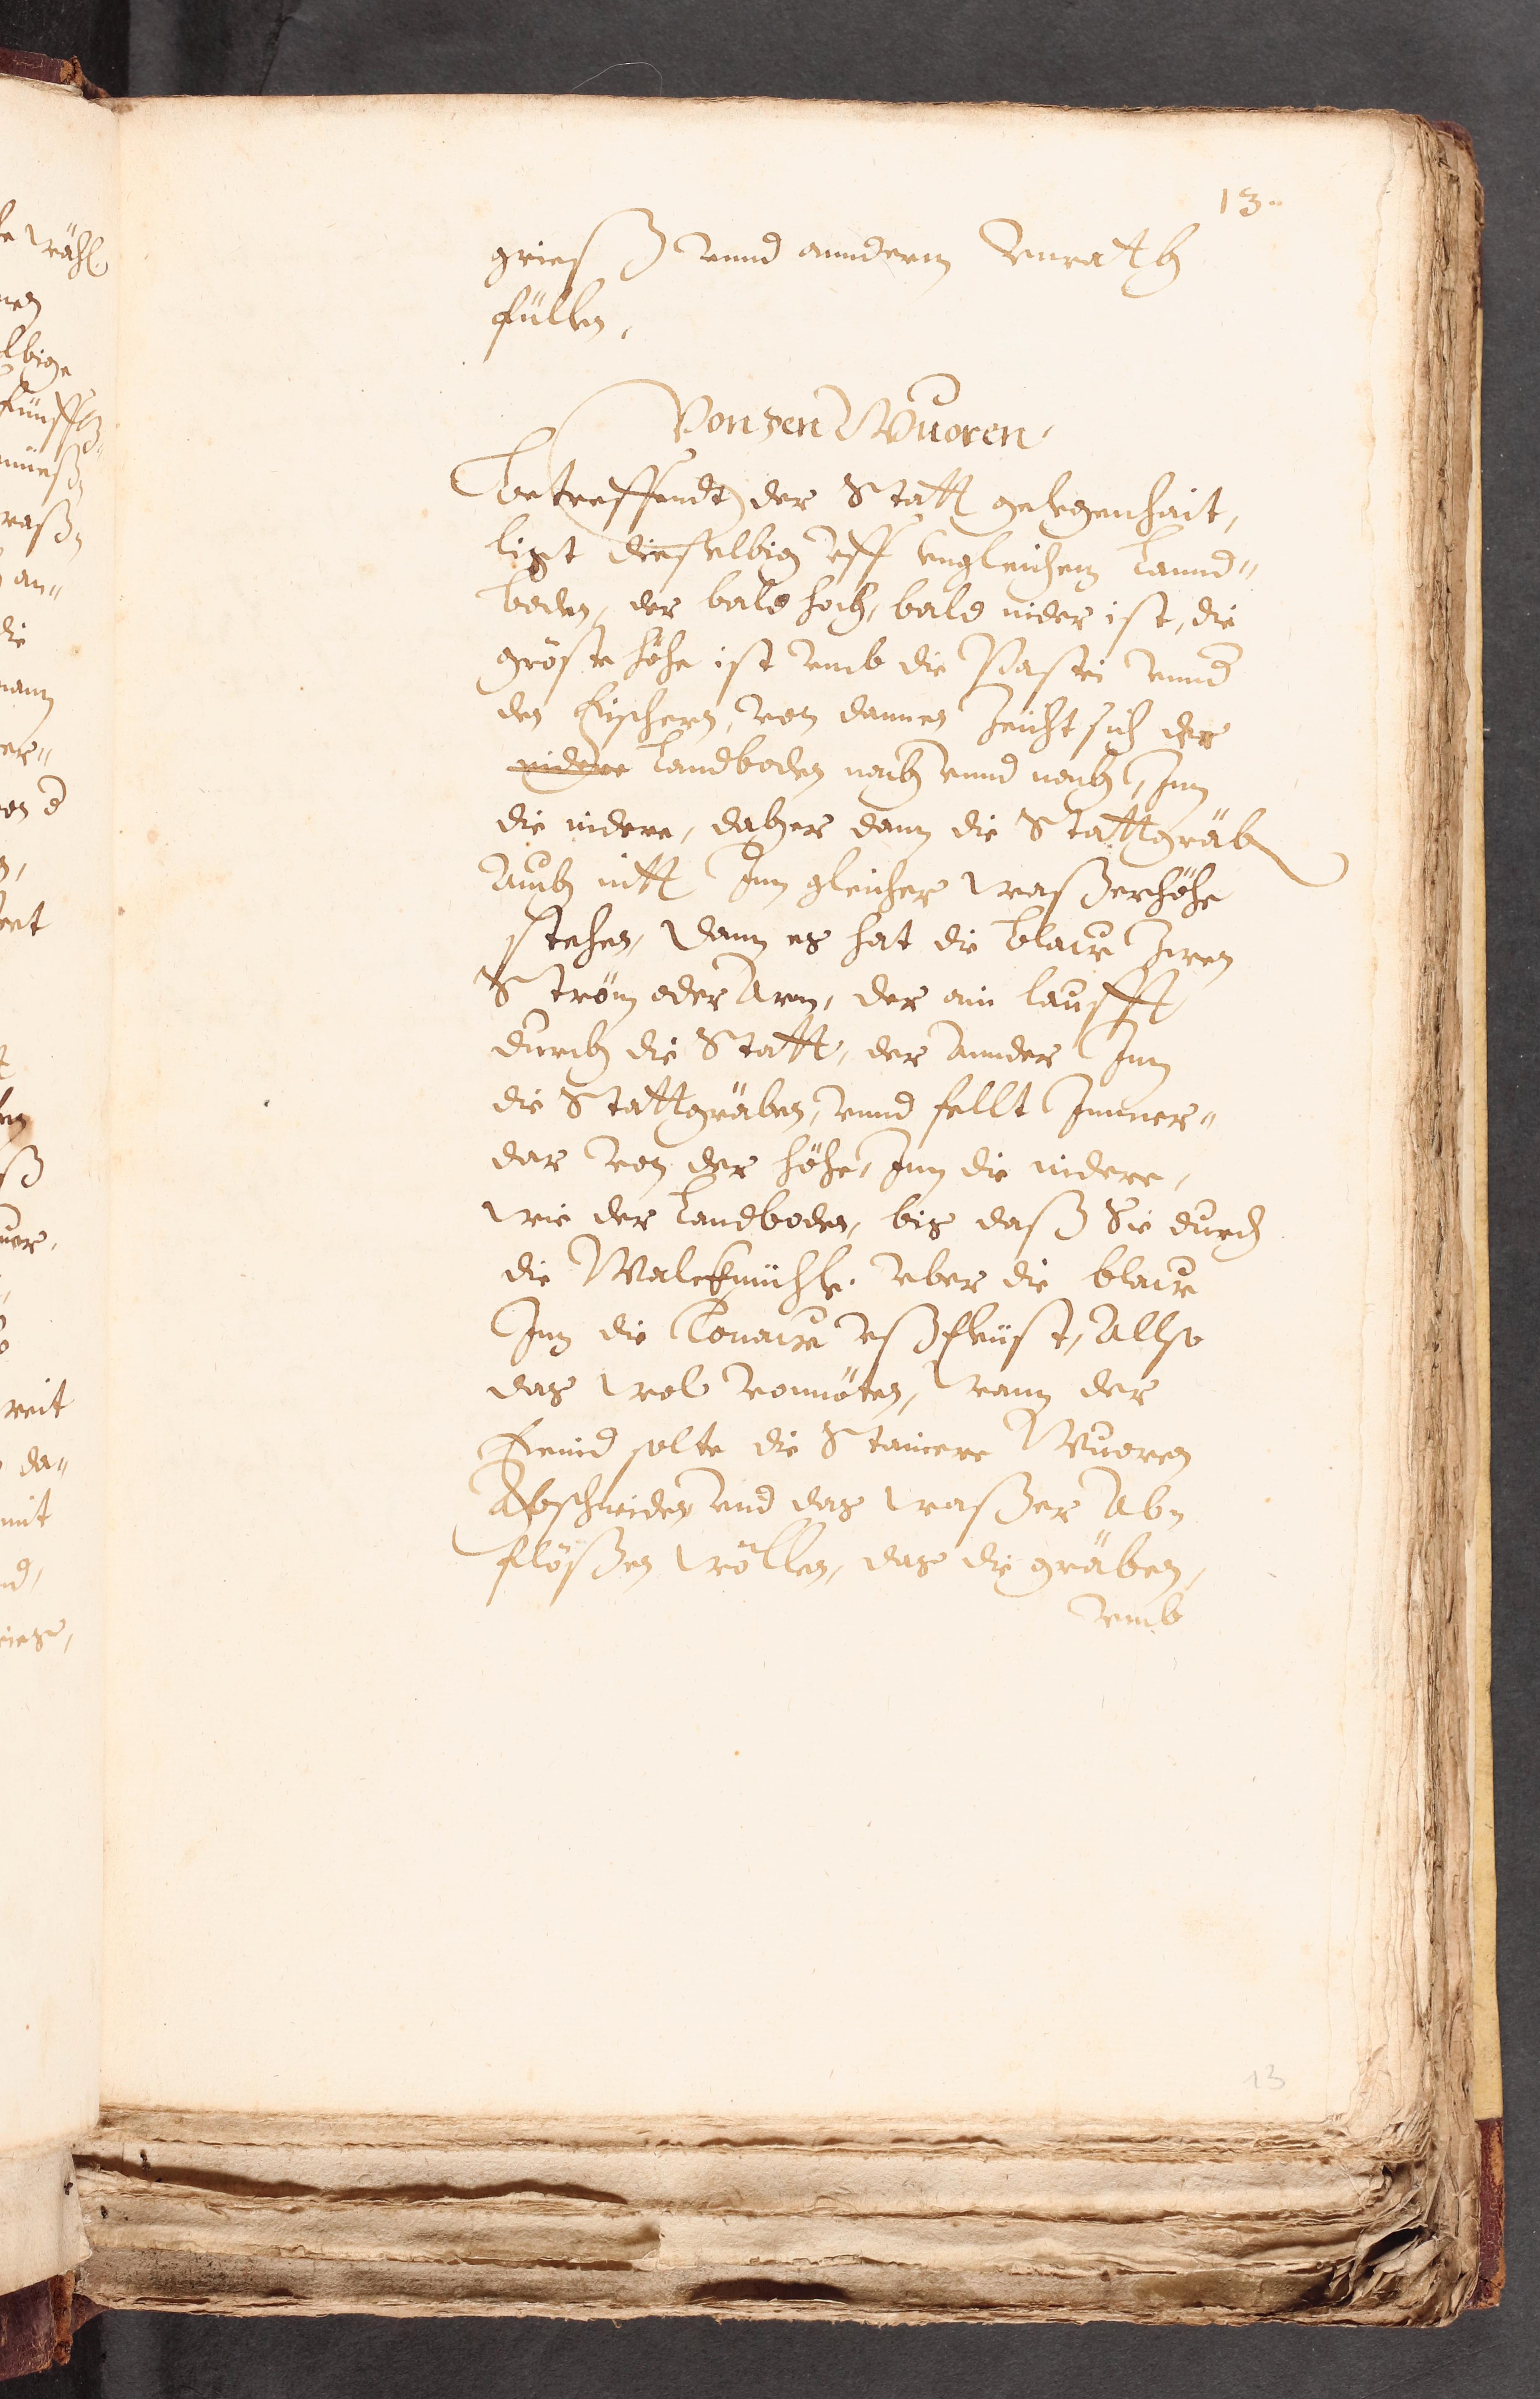 13.
grieß vnnd annderm vnrath
füllen,
Von den Wuoren.
Betreffendt der Statt gelegenhait,
ligt dieselbig vff vngleichem Lannd-
boden, der bald hoch, bald nider ist, die
gröste höhe ist vmb die Pastei vnnd
den Fischern, von dannen zeücht sich der
nidere Landboden nach vnnd nach, Inn
die nidere, daher dann die Stattgräb
Auch nitt Inn gleicher wasserhöhe
stehen, dann es hat die Blaw zwen
Ström oder Arm, der ain laufft
durch die Statt, der annder Inn
die Stattgräben, vnnd fellt Immer-
dar von der höhe, Inn die nidere,
wie der Landboden, bis daß Sie durch
die Walckmühle vber die blaw
Inn die Tonaw vßfleüst, Allso
das wol vonnöten, wann der
Feind solte die Stainere Wuoren
Abschneiden vnd das wasser Ab-
flößen wöllen, das die gräben,
vmb
13